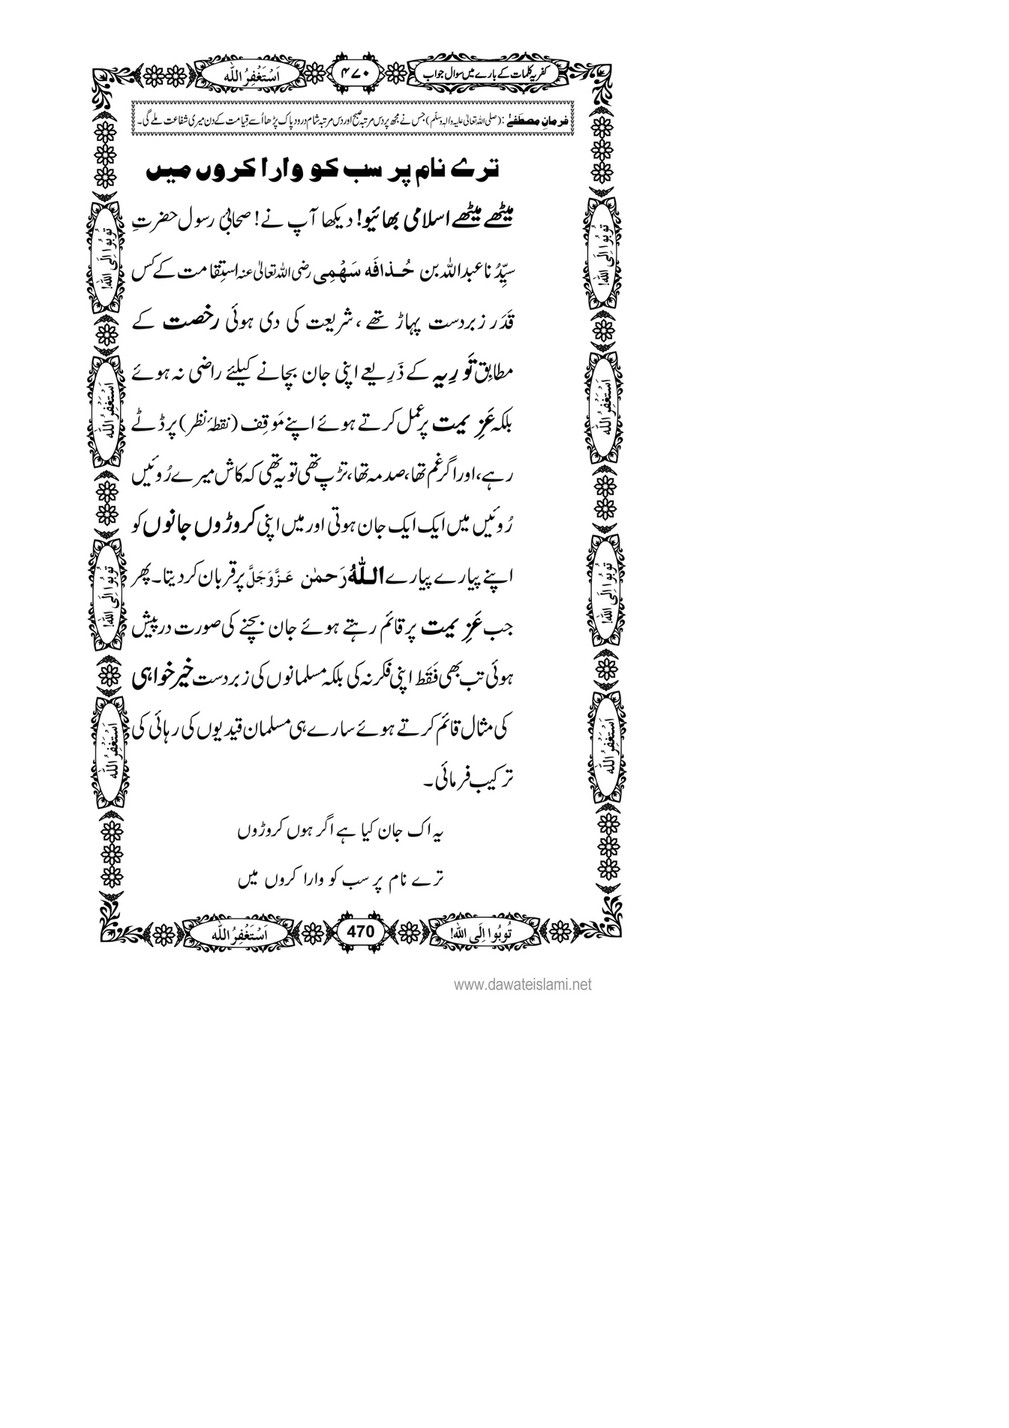 کفریہ کلمات کے بارے میں سوال جواب
۴۷۰
اَسْتَغْفِرُ اللّٰہ
فرمانِ مصطفےٰ : (صلی اللہ تعالیٰ علیہ واٰلہٖ وسلّم) جس نے مجھ پر دس مرتبہ صبح اور دس مرتبہ شام درود پاک پڑھا اُسے قِیامت کے دن میری شفاعت ملے گی۔
ترے نام پر سب کو وارا کروں میں
میٹھے میٹھے اسلامی بھائیو! دیکھا آپ نے! صَحابیٔ رسول حضرتِ
سیِّدُنا عبداللہ بن حُذافَہ سَہْمِی رضی اللہ تعالیٰ عنہ استِقامت کے کس
قَدَر زبردست پہاڑ تھے ، شریعت کی دی ہوئی رخصت کے
مطابِق تَورِیہ کے ذَرِیعے اپنی جان بچانے کیلئے راضی نہ ہوئے
بلکہ عَزِیمت پر عمل کرتے ہوئے اپنے مَوقِف (نقطۂ نظر) پر ڈٹے
رہے، اور اگر غم تھا، صدمہ تھا، تڑپ تھی تو یہ تھی کہ کاش میرے رُوئیں
رُوئیں میں ایک ایک جان ہوتی اور میں اپنی کروڑوں جانوں کو
اپنے پیارے پیارے اللہُ رَحمٰن عَزَّوَجَلَّ پر قربان کر دیتا۔ پھر
جب عَزِیمت پر قائم رہتے ہوئے جان بچنے کی صورت درپیش
ہوئی تب بھی فَقَط اپنی فکر نہ کی بلکہ مسلمانوں کی زبردست خیر خواہی
کی مثال قائم کرتے ہوئے سارے ہی مسلمان قیدیوں کی رہائی کی
ترکیب فرمائی۔
یہ اک جان کیا ہے اگر ہوں کروڑوں
ترے نام پر سب کو وارا کروں میں
تُوبُوا اِلَی اللہ!
اَسْتَغْفِرُ اللّٰہ
تُوبُوا اِلَی اللہ!
اَسْتَغْفِرُ اللّٰہ
تُوبُوا اِلَی اللہ!
اَسْتَغْفِرُ اللّٰہ
تُوبُوا اِلَی اللہ!
اَسْتَغْفِرُ اللّٰہ
تُوبُوا اِلَی اللہ!
470
اَسْتَغْفِرُ اللّٰہ
www.dawateislami.net